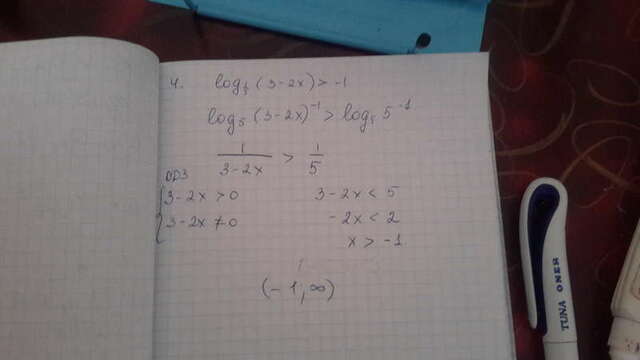 4. log⅕(3-2x)>-1
log₅(3-2x)⁻¹>log₅5⁻¹
1/(3-2x) > 1/5
ОДЗ
3-2x>0
3-2x≠0
3-2x<5
-2x<2
x>-1
(-1,∞)
TUNA ONER